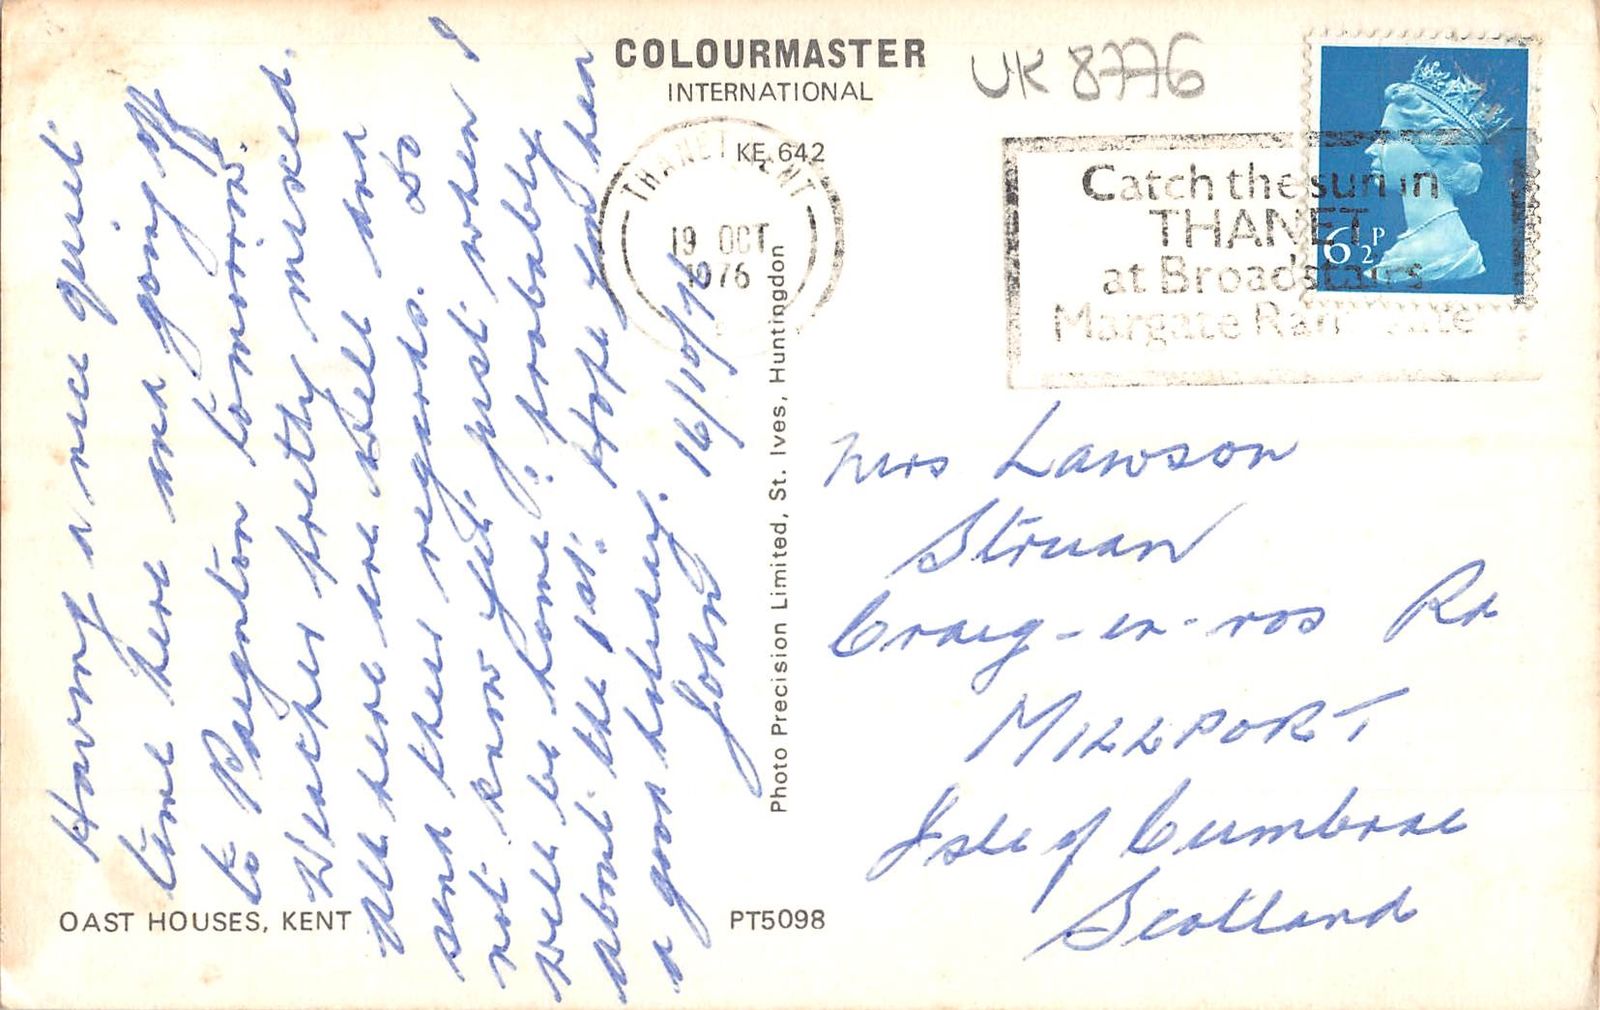 COLOURMASTER
INTERNATIONAL
UK 8776
KE 642
THANET KENT
19 OCT
1976
Catch the sun in
THANET
at Broadstairs
Margate Ramsgate
6½P
Having a nice quiet
time here and going off
to Paignton tomorrow.
Weather pretty mixed.
All here are well and
send their regards. Do
not know yet just when I
will be home; probably
about the 1st. Hope you had
a good holiday.
John 16/10/76
Photo Precision Limited, St. Ives, Huntingdon
Mrs Lawson
Struan
Craig-en-ros Rd
MILLPORT
Isle of Cumbrae
Scotland
OAST HOUSES, KENT
PT5098